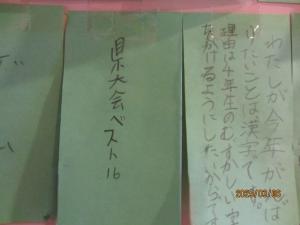 県大会ベスト16
わたしが今年がんば
りたいことは漢字です。
理由は4年生のむずかしい字
をかけるようにしたいからです